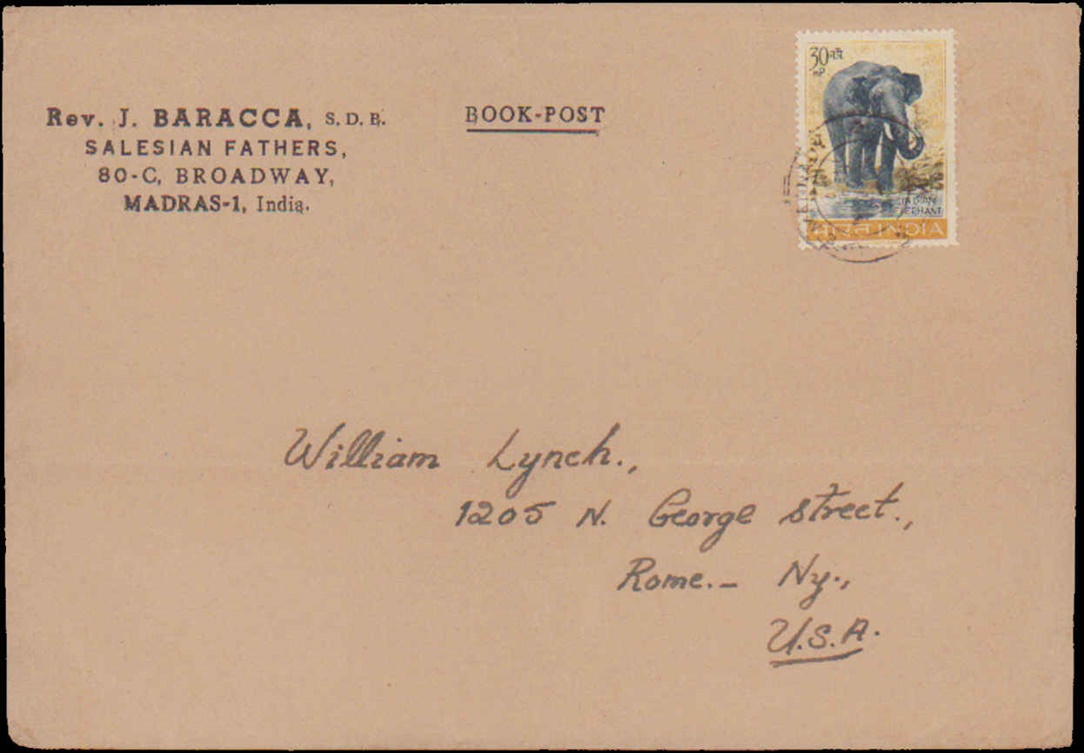 Rev. J. BARACCA, S. D. B.
SALESIAN FATHERS,
80-C, BROADWAY,
MADRAS-1, India.
BOOK-POST
30 नपै
nP
INDIAN
ELEPHANT
INDIA
William Lynch.,
1205 N. George Street.,
Rome.- Ny.,
U.S.A.